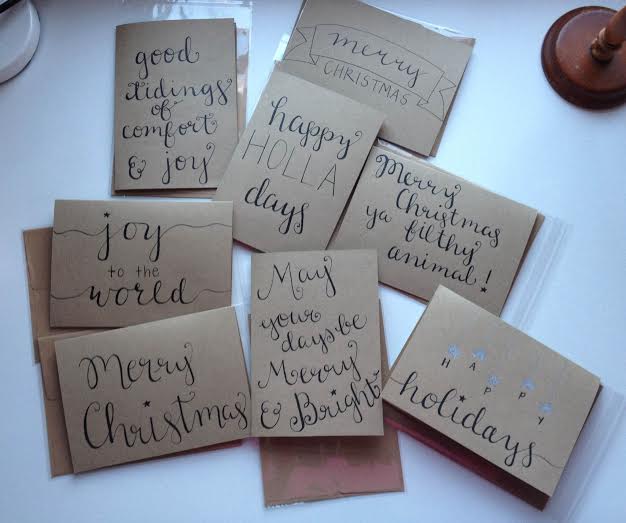 good
tidings
of
comfort
& joy
merry
CHRISTMAS
happy
HOLLA
days
Merry
Christmas
ya filthy
animal!
joy
to the
world
May
your
days be
Merry
& Bright
Merry
Christmas
HAPPY
holidays